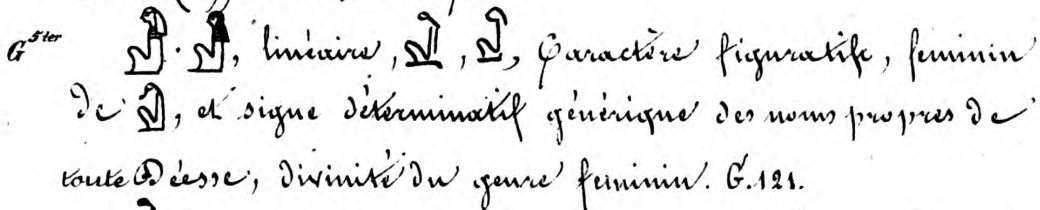 G⁵ᵗᵉʳ 𓁐 · 𓁐, linéaire, 𓁐, 𓁐, Caractère figuratif, feminin
de 𓀭, et signe déterminatif générique des noms propres de
toute Déesse, divinité du genre feminin. G. 121.